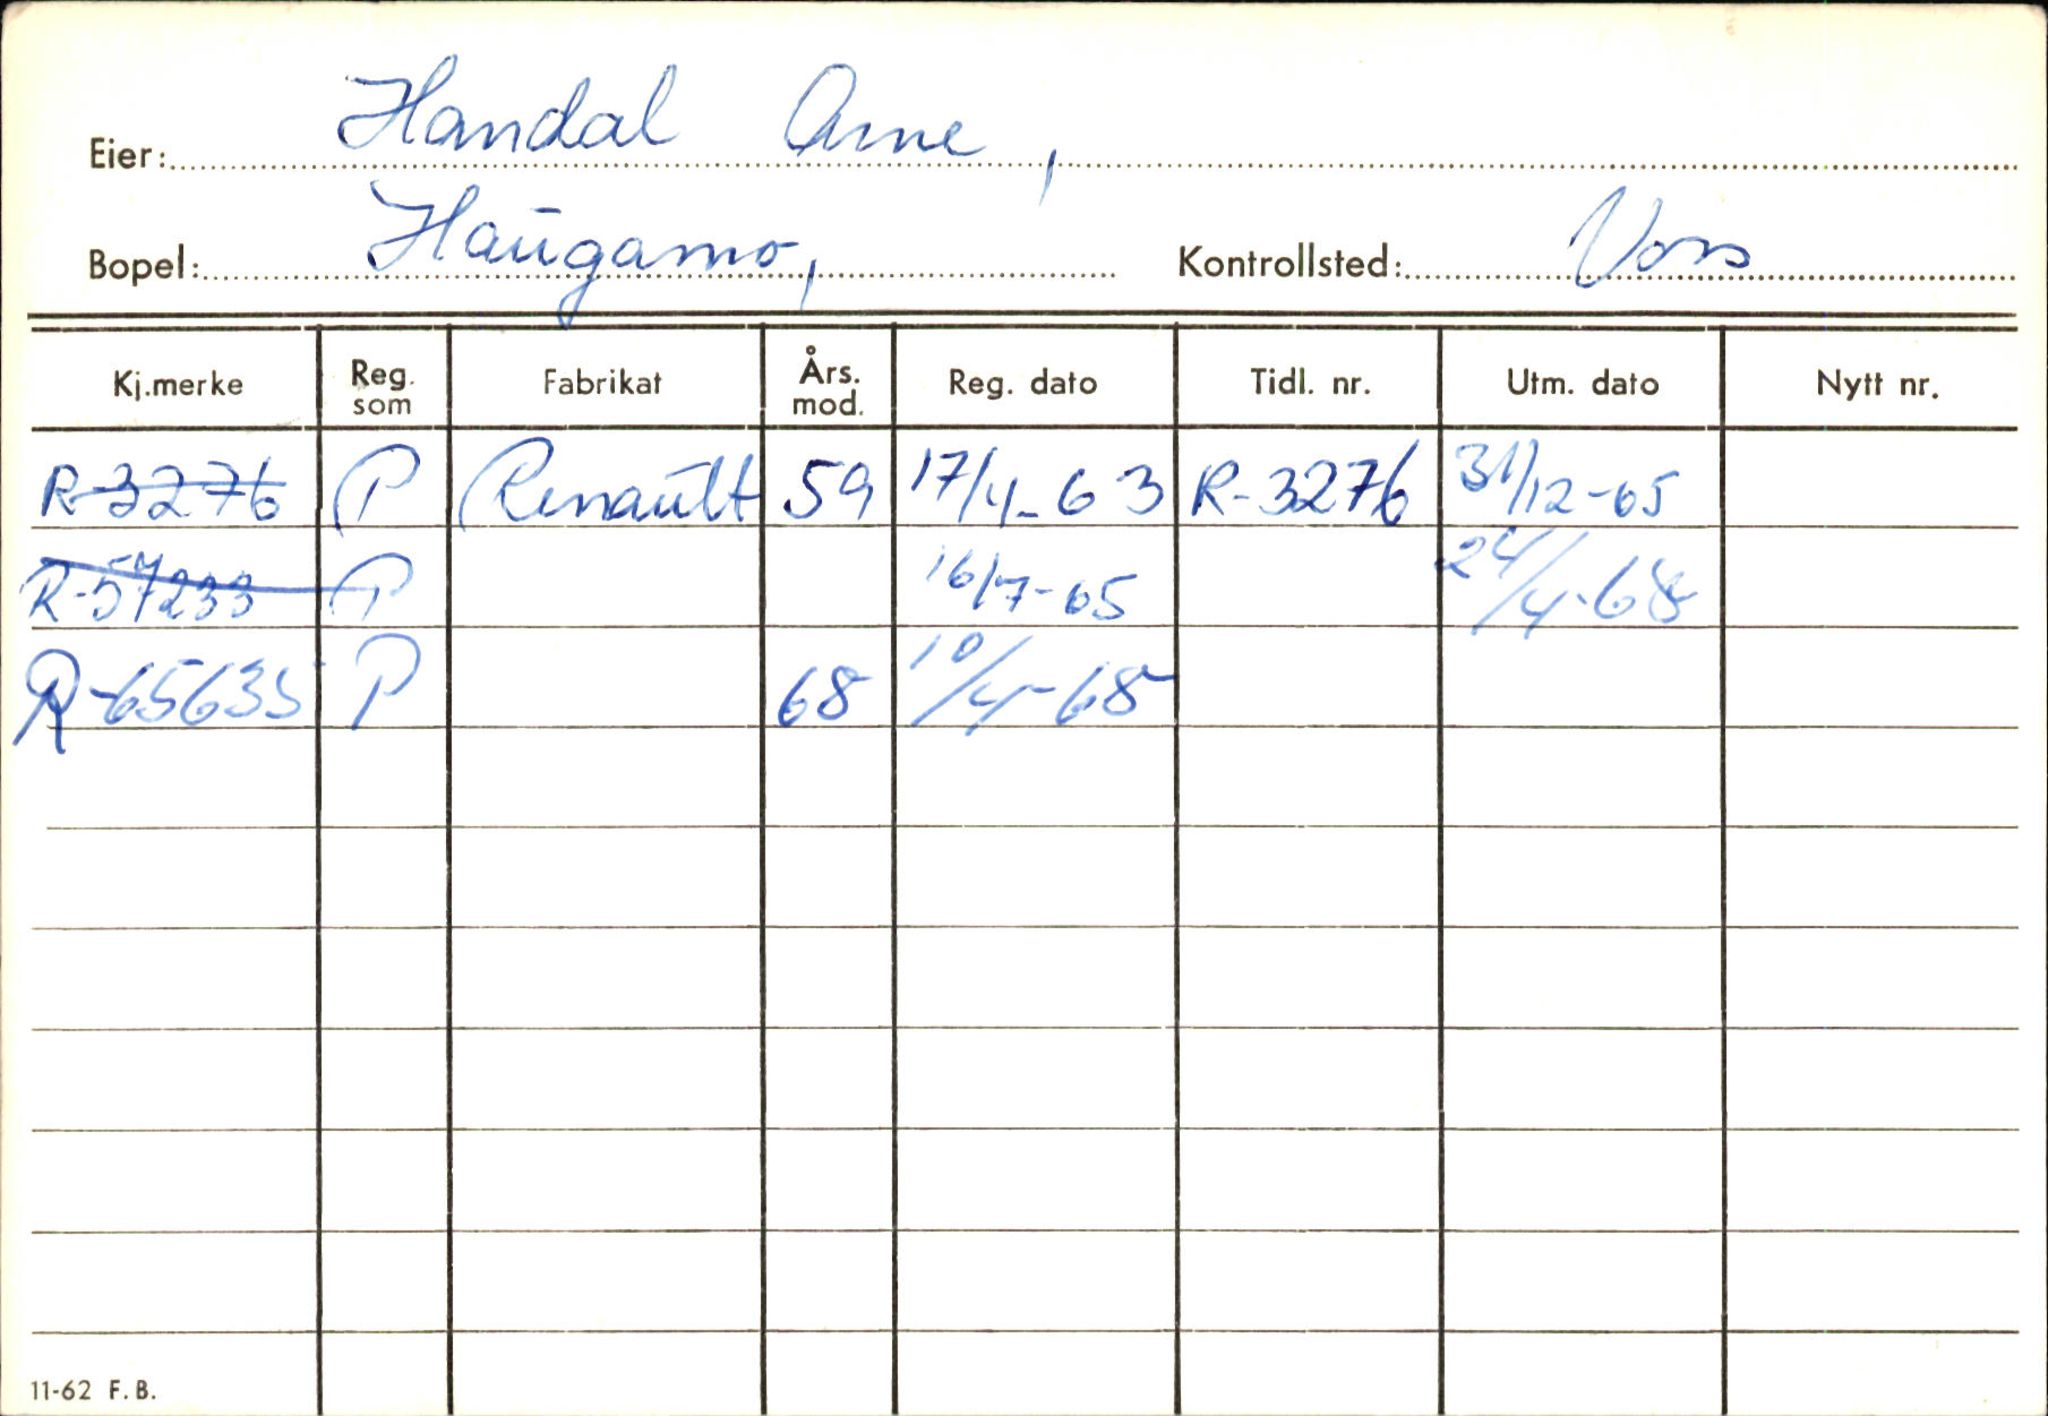 Eier: Handal Arne,
Bopel: Haugamo, Kontrollsted: Voss
Kj.merke Reg. som Fabrikat Års. mod. Reg. dato Tidl. nr. Utm. dato Nytt nr.
R-3276 P Renault 59 17/4-63 R-3276 31/12-65
R-57233 P 16/7-65 24/4-68
R-65635 P 68 10/4-68
11-62 F.B.